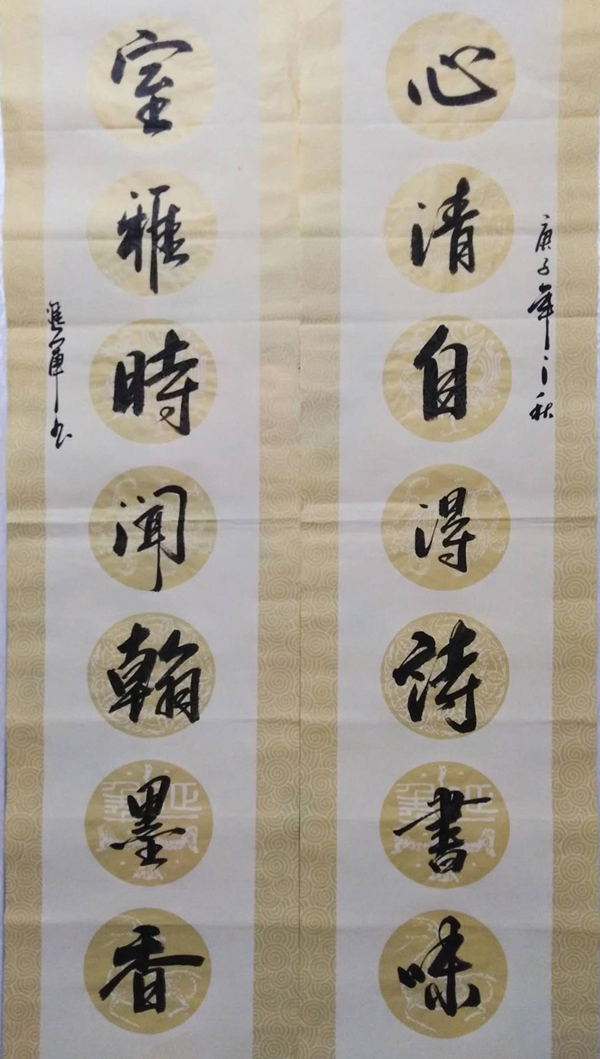 庚子年之秋
心清自得詩書味
室雅時聞翰墨香
進軍书